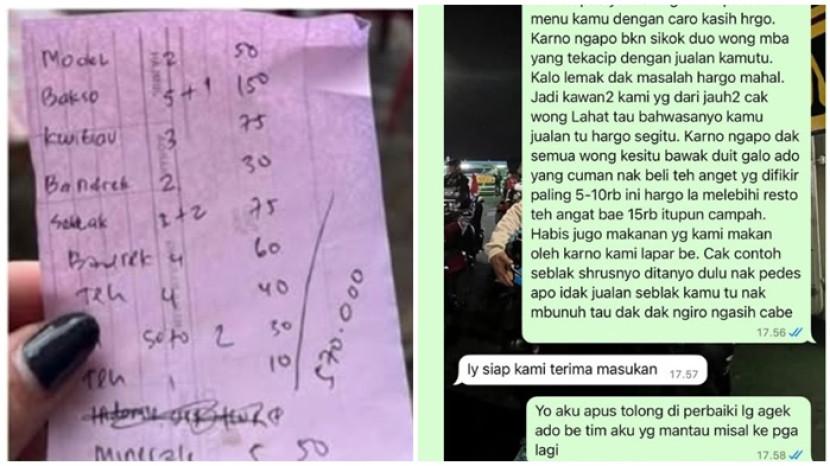 Model 2 50
Bakso 5+1 150
kwitiau 3 75
Bandrek 2 30
Seblak 3+2 75
Bandrek 4 60
Teh 4 40
soto 2 30
Teh 1 10
570.000
Minerale 5 50
menu kamu dengan caro kasih hrgo.
Karno ngapo bkn sikok duo wong mba
yang tekacip dengan jualan kamutu.
Kalo lemak dak masalah hargo mahal.
Jadi kawan2 kami yg dari jauh2 cak
wong Lahat tau bahwasanyo kamu
jualan tu hargo segitu. Karno ngapo dak
semua wong kesitu bawak duit galo ado
yang cuman nak beli teh anget yg difikir
paling 5-10rb ini hargo la melebihi resto
teh angat bae 15rb itupun campah.
Habis jugo makanan yg kami makan
oleh karno kami lapar be. Cak contoh
seblak shrusnyo ditanyo dulu nak pedes
apo idak jualan seblak kamu tu nak
mbunuh tau dak dak ngiro ngasih cabe
17.56
Iy siap kami terima masukan 17.57
Yo aku apus tolong di perbaiki lg agek
ado be tim aku yg mantau misal ke pga
lagi 17.58